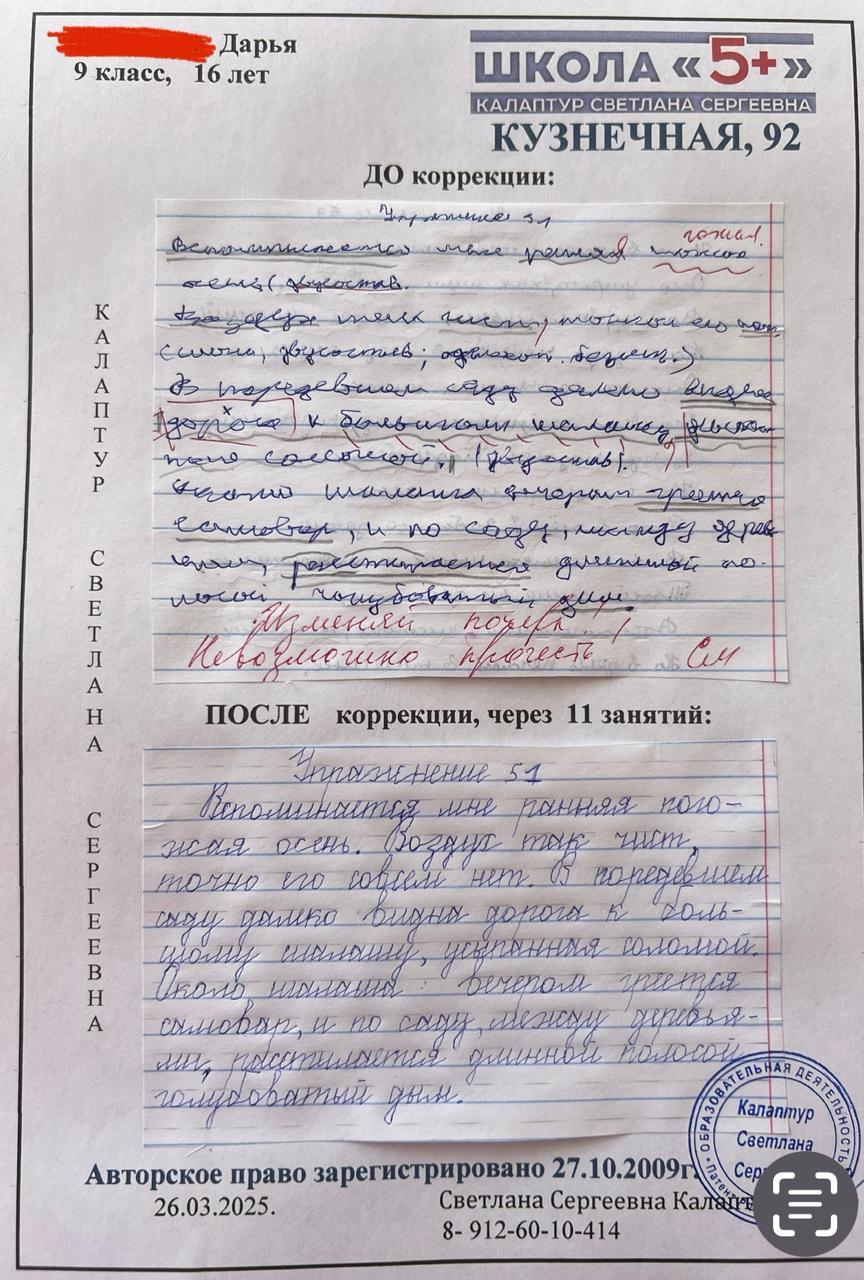 Дарья
9 класс, 16 лет
ШКОЛА «5+»
КАЛАПТУР СВЕТЛАНА СЕРГЕЕВНА
КУЗНЕЧНАЯ, 92
ДО коррекции:
51
Вспоминается мне ранняя
погожая
осень (двустав.
Воздух так чист, точно его
В поредевшем саду далеко видна
дорога к большому шалашу,
соломой. (двустав).
Около шалаша вечером греется
самовар, и по саду, между дерев
ями, расстилается длинной по-
лосой голубоватый дым
Изменяй почерк!
Невозможно прочесть! См
ПОСЛЕ коррекции, через 11 занятий:
Упражнение 51
Вспоминается мне ранняя пого-
жая осень. Воздух так чист,
точно его совсем нет. В поредевшем
саду далеко видна дорога к боль-
шому шалашу, усыпанная соломой.
Около шалаша вечером греется
самовар, и по саду, между деревья-
ми, расстилается длинной полосой
голубоватый дым.
КАЛАПТУР СВЕТЛАНА СЕРГЕЕВНА
ОБРАЗОВАТЕЛЬНАЯ ДЕЯТЕЛЬНОСТЬ
Калаптур
Светлана
Авторское право зарегистрировано 27.10.2009г.
26.03.2025.
Светлана Сергеевна Калапт
8- 912-60-10-414